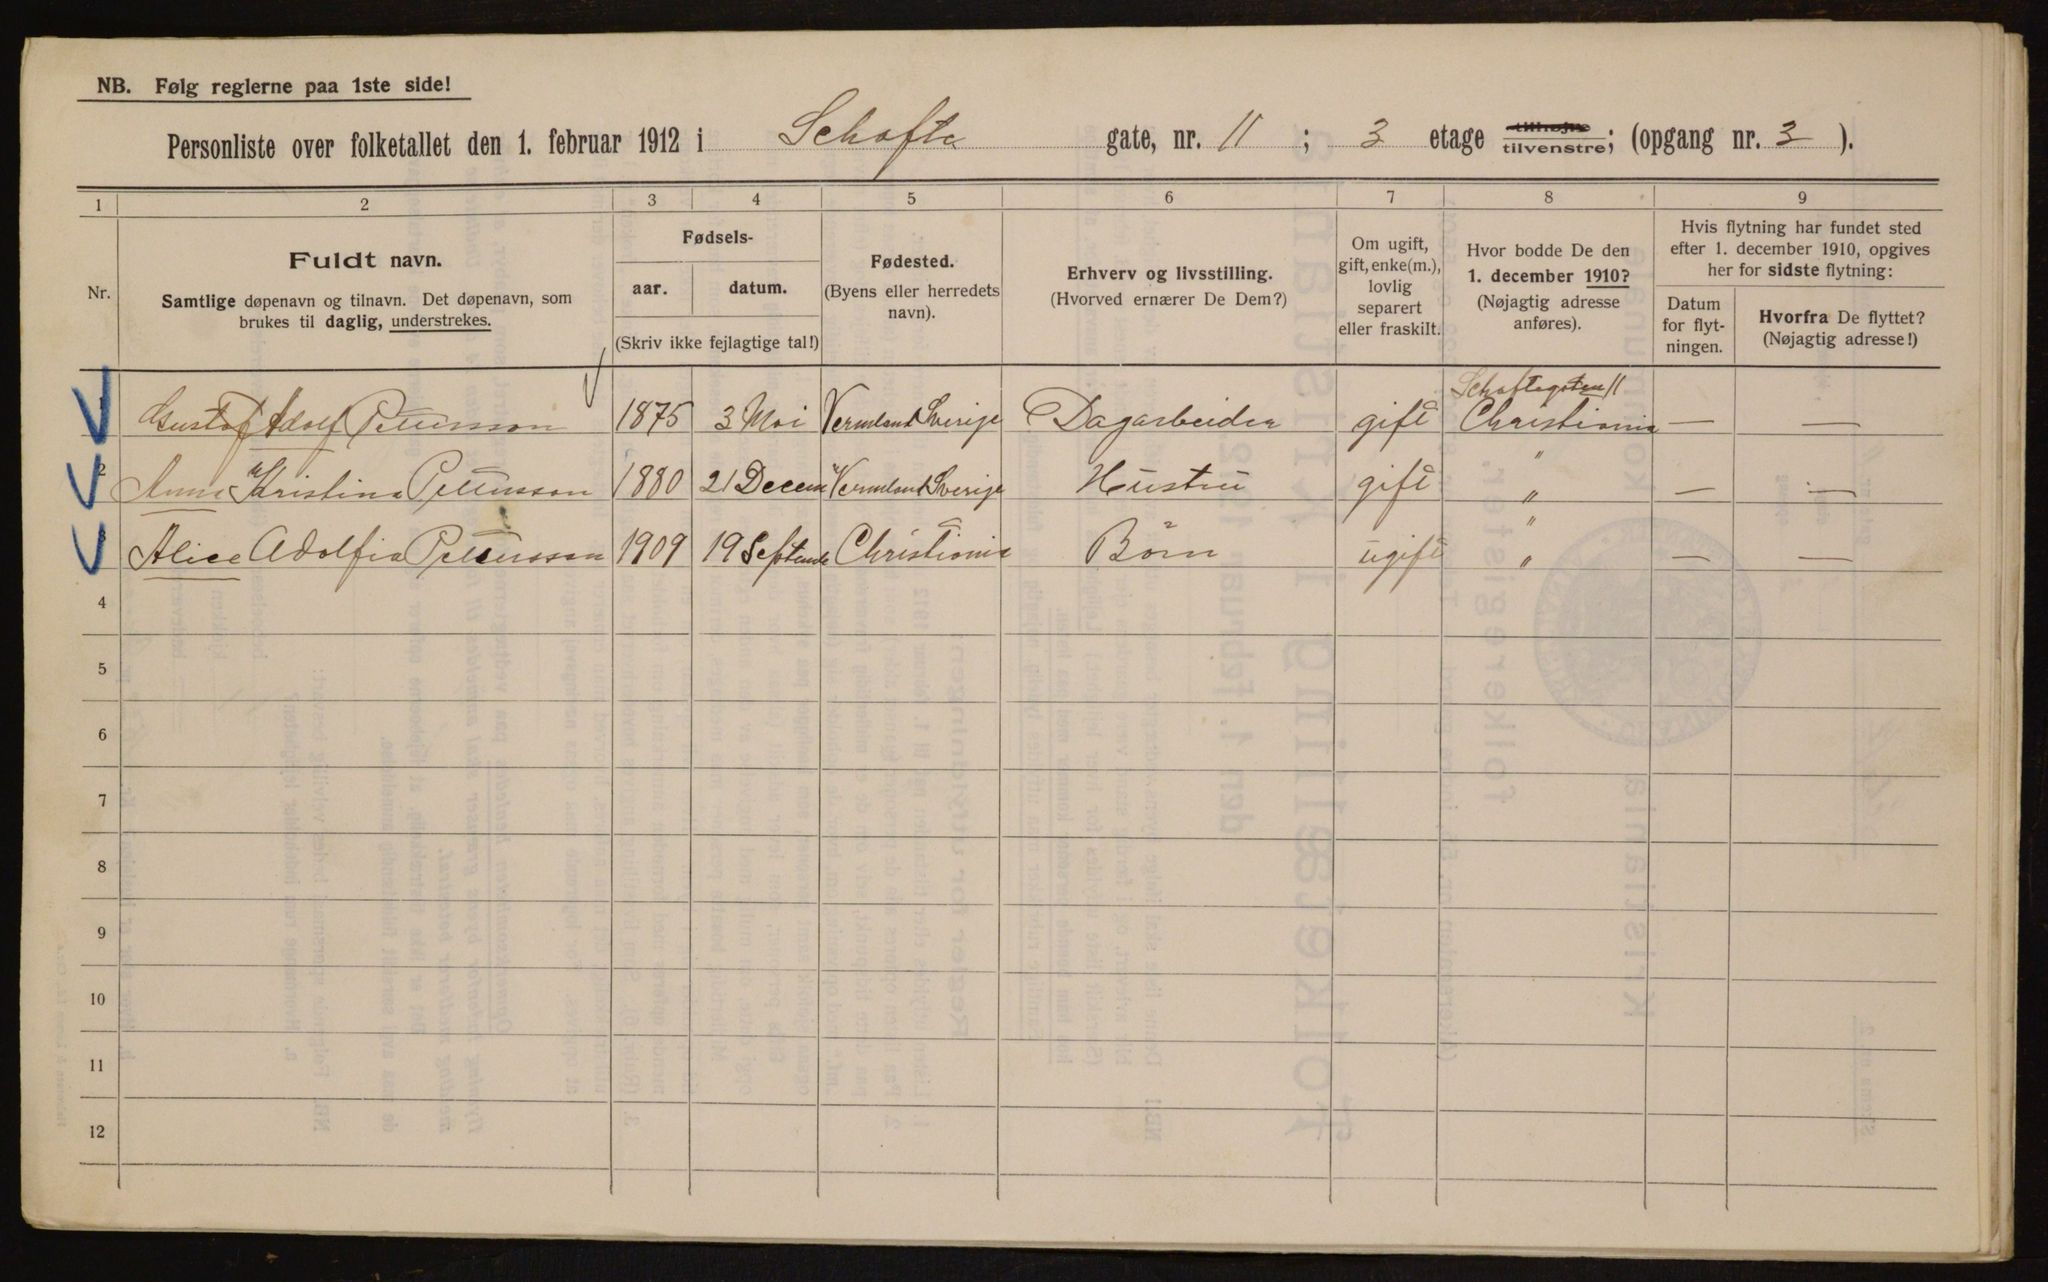 NB. Følg reglerne paa 1ste side!
Personliste over folketallet den 1. februar 1912 i Schofte gate, nr. 11 ; 3 etage tilhøjre tilvenstre; (opgang nr. 3 ).
1 2 3 4 5 6 7 8 9
Nr.
Fuldt navn.
Samtlige døpenavn og tilnavn. Det døpenavn, som
brukes til daglig, understrekes.
Fødsels-
aar. datum.
(Skriv ikke fejlagtige tal!)
Fødested.
(Byens eller herredets
navn).
Erhverv og livsstilling.
(Hvorved ernærer De Dem?)
Om ugift,
gift, enke(m.),
lovlig
separert
eller fraskilt.
Hvor bodde De den
1. december 1910?
(Nøjagtig adresse
anføres).
Hvis flytning har fundet sted
efter 1. december 1910, opgives
her for sidste flytning:
Datum
for flyt-
ningen.
Hvorfra De flyttet?
(Nøjagtig adresse!)
Schoftegaten 11
1 Gustaf Adolf Pettersson 1875 3 Mai Vermland Sverige Dagarbeider gift Christiania — —
2 Anna Kristina Pettersson 1880 21 Decem Vermland Sverige Hustru gift " " — —
3 Alice Adolfia Pettersson 1909 19 Septembe Christiania Börn ugift " " — —
4
5
6
7
8
9
10
11
12